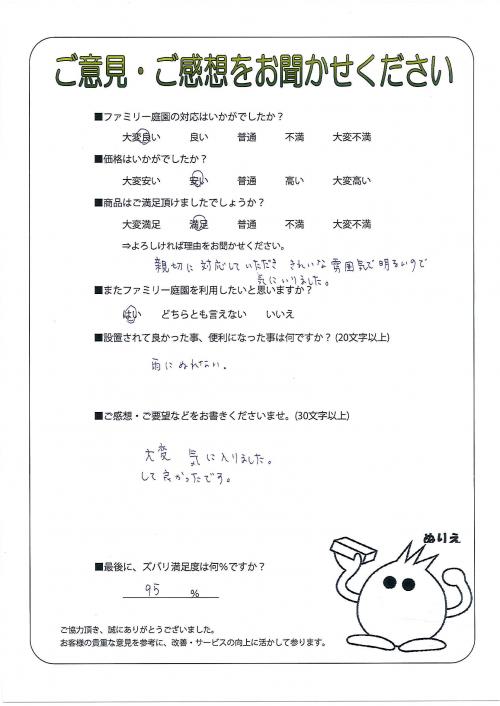 ご意見・ご感想をお聞かせください
■ファミリー庭園の対応はいかがでしたか？
大変良い 良い 普通 不満 大変不満
■価格はいかがでしたか？
大変安い 安い 普通 高い 大変高い
■商品はご満足頂けましたでしょうか？
大変満足 満足 普通 不満 大変不満
⇒よろしければ理由をお聞かせください。
親切に対応していただき きれいな雰囲気で明るいので
気にいりました。
■またファミリー庭園を利用したいと思いますか？
はい どちらとも言えない いいえ
■設置されて良かった事、便利になった事は何ですか？(20文字以上)
雨にぬれない。
■ご感想・ご要望などをお書きくださいませ。(30文字以上)
大変 気に入りました。
して良かったです。
ぬりえ
■最後に、ズバリ満足度は何%ですか？
95 %
ご協力頂き、誠にありがとうございました。
お客様の貴重な意見を参考に、改善・サービスの向上に活かして参ります。